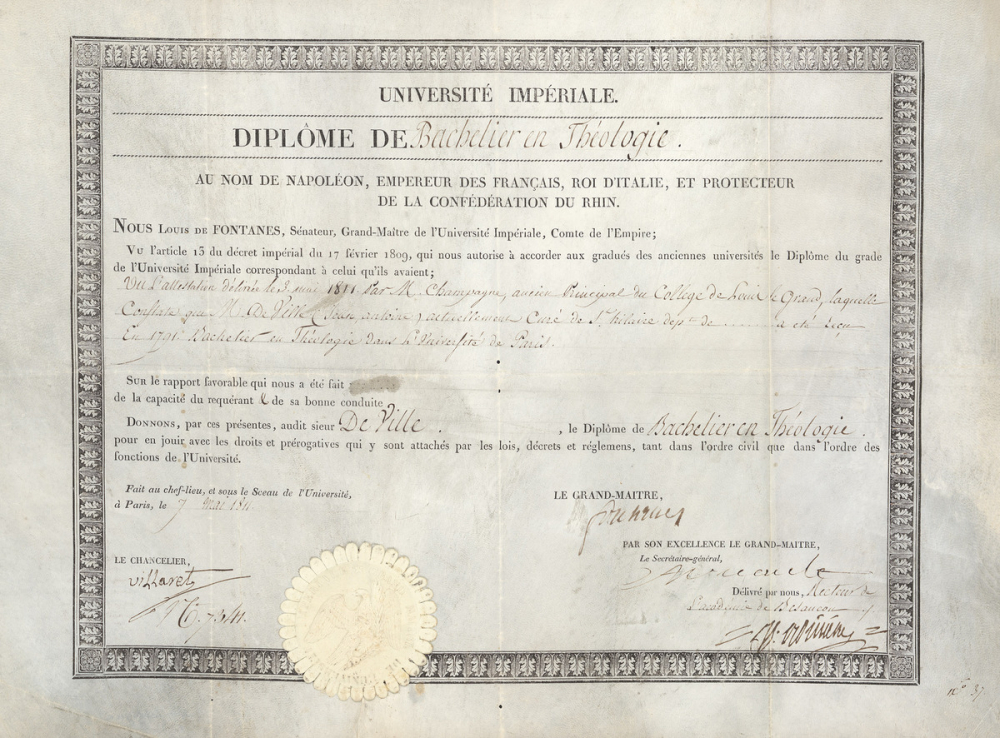 UNIVERSITÉ IMPÉRIALE.
DIPLÔME DE Bachelier en Théologie.
AU NOM DE NAPOLÉON, EMPEREUR DES FRANÇAIS, ROI D'ITALIE, ET PROTECTEUR
DE LA CONFÉDÉRATION DU RHIN.
NOUS LOUIS DE FONTANES, Sénateur, Grand-Maître de l'Université Impériale, Comte de l'Empire;
VU l'article 13 du décret impérial du 17 février 1809, qui nous autorise à accorder aux gradués des anciennes universités le Diplôme du grade
de l'Université Impériale correspondant à celui qu'ils avaient;
Vu l'attestation délivrée le 3 mai 1811 par M. Champagne, ancien Principal du College de Louis le Grand, laquelle
Constate que M. De Ville antoine) actuellement Curé de St. hilaire dept. de ........ a été reçu
En 1791 Bachelier en Théologie dans l'Université de Paris.
SUR le rapport favorable qui nous a été fait
de la capacité du requérant & de sa bonne conduite
DONNONS, par ces présentes, audit sieur De Ville. , le Diplôme de Bachelier en Théologie.
pour en jouir avec les droits et prérogatives qui y sont attachés par les lois, décrets et réglemens, tant dans l'ordre civil que dans l'ordre des
fonctions de l'Université.
Fait au chef-lieu, et sous le Sceau de l'Université,
à Paris, le 7 mai 1811
LE GRAND-MAITRE,
Fontanes
PAR SON EXCELLENCE LE GRAND-MAITRE,
Le Secrétaire-général,
LE CHANCELIER,
Villaret
Délivré par nous, Recteur de
L'académie de Besançon
n° 37